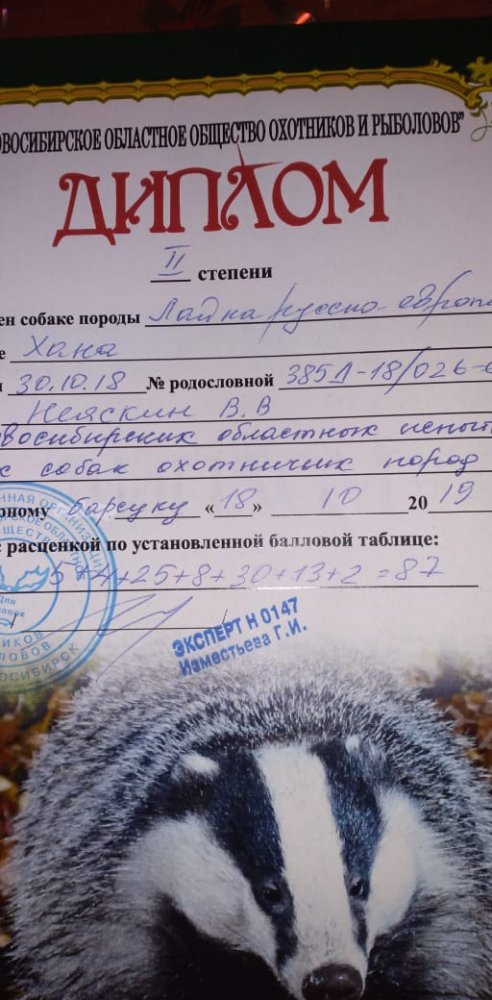 ОВОСИБИРСКОЕ ОБЛАСТНОЕ ОБЩЕСТВО ОХОТНИКОВ И РЫБОЛОВОВ"
ДИПЛОМ
II степени
ен собаке породы Лайка русско-европе
е Хана
и 30.10.18 № родословной 385Л-18/026-
Неяскин В.В
овосибирских областных испыт
х собак охотничьих пород
рному барсуку «18» 10 2019
с расценкой по установленной балловой таблице:
5+4+25+8+30+13+2=87
ЭКСПЕРТ Н 0147
Изместьева Г.И.